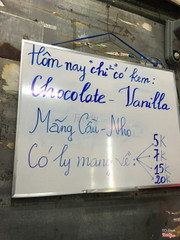 Hôm nay "chỉ" có kem:
Chocolate - Vanilla
Mãng Cầu - Nho
Có ly mang về:
5K
7K
15K
20K